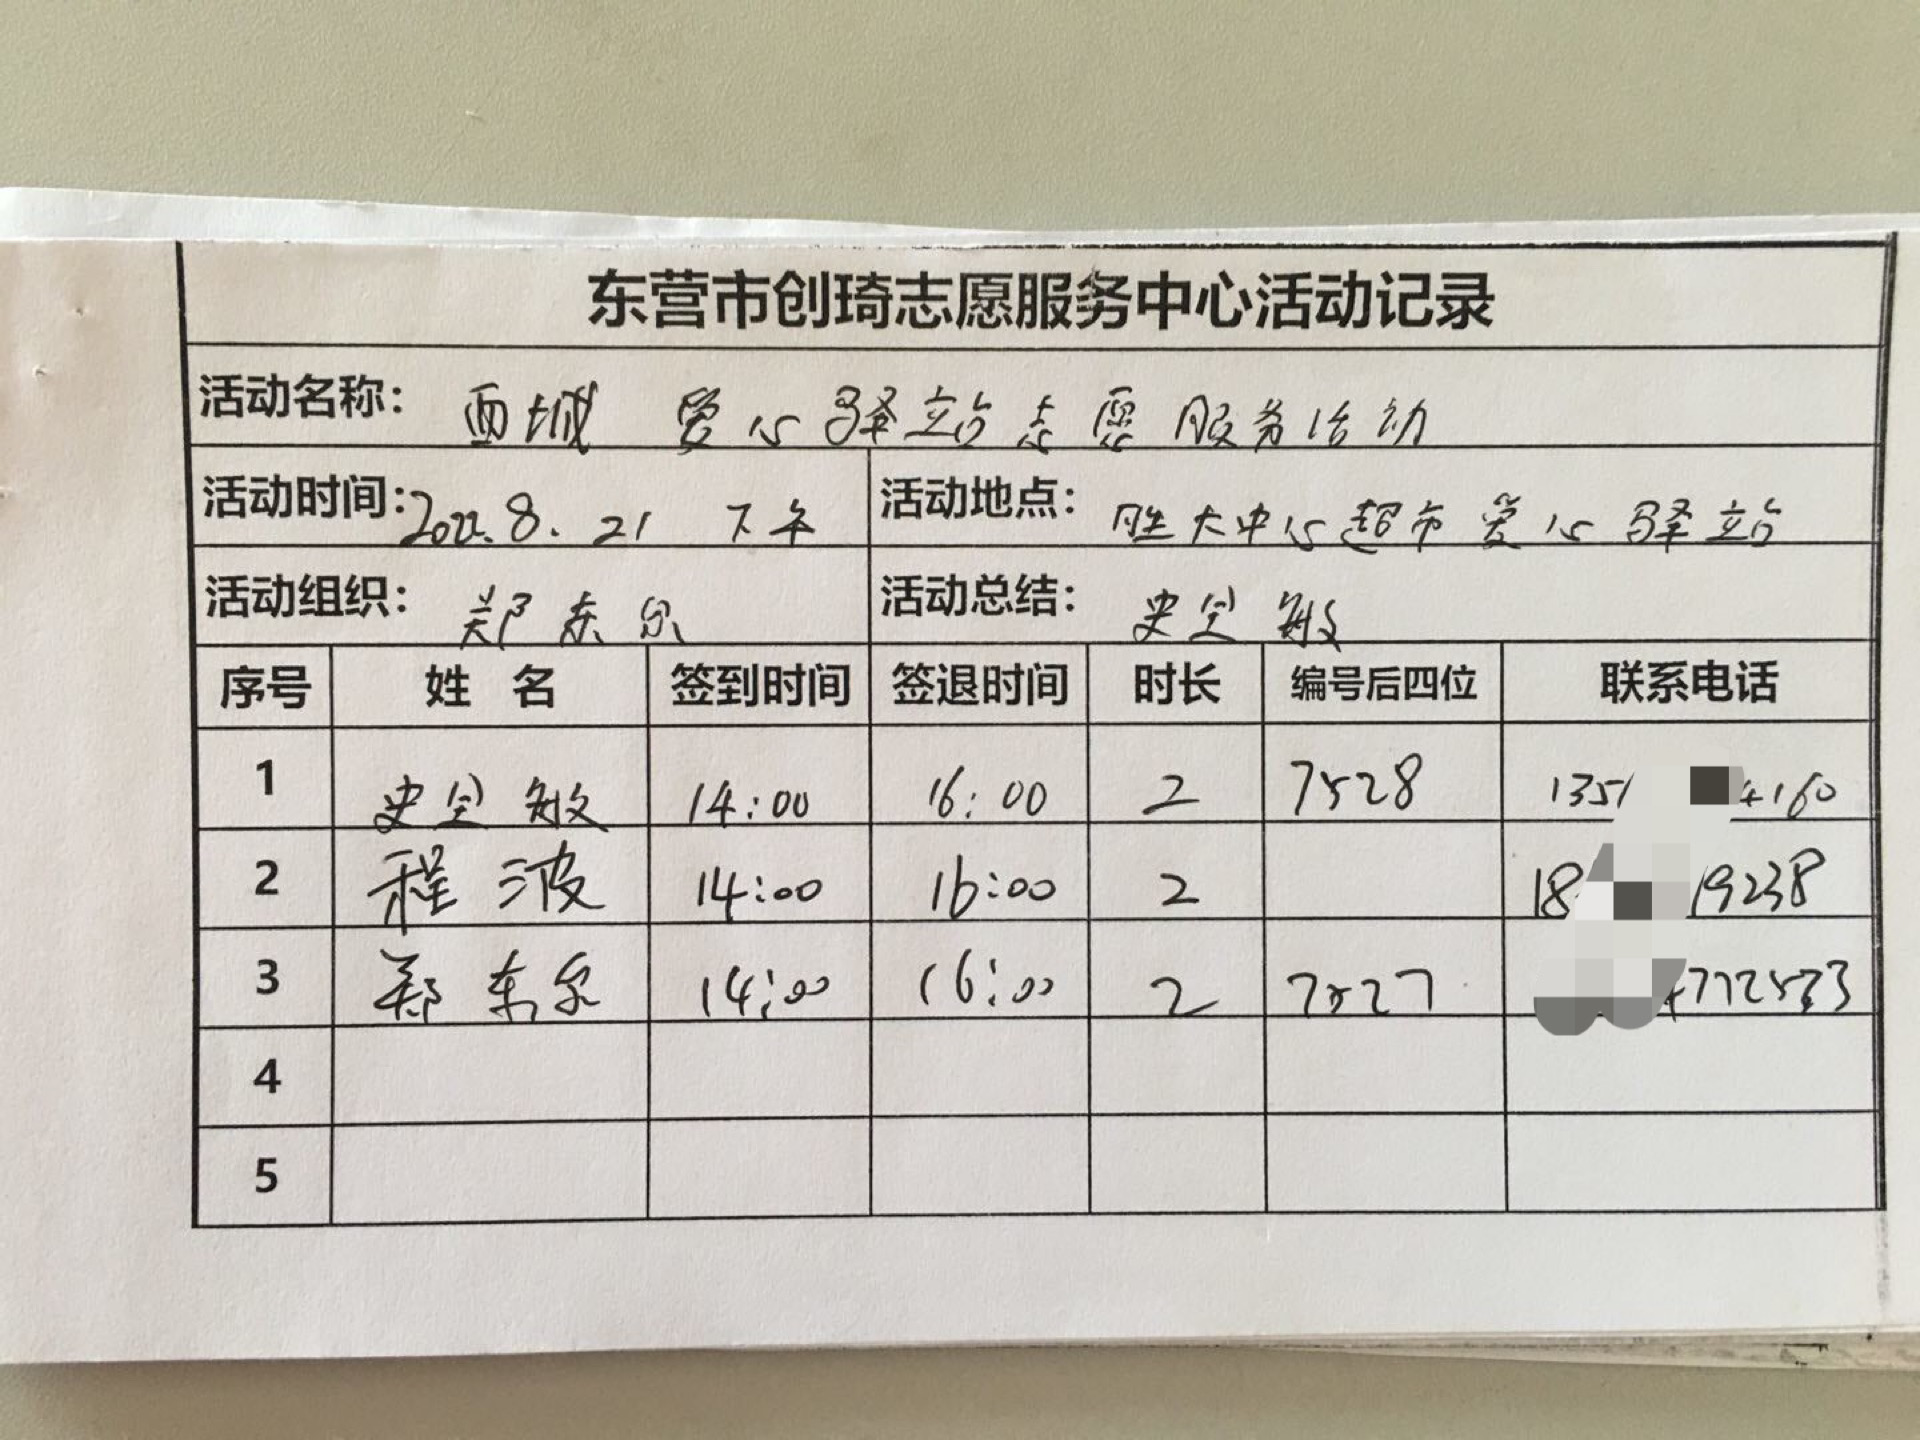 东营市创琦志愿服务中心活动记录
活动名称： 西城 爱心驿站志愿服务活动
活动时间： 2022.8.21 下午 活动地点： 胜大中心超市爱心驿站
活动组织： 郑东 活动总结： 史 敏
序号 姓 名 签到时间 签退时间 时长 编号后四位 联系电话
1 史 敏 14:00 16:00 2 7528 1351 4160
2 程波 14:00 16:00 2 18 19238
3 郑东 14:00 16:00 2 7527
4
5